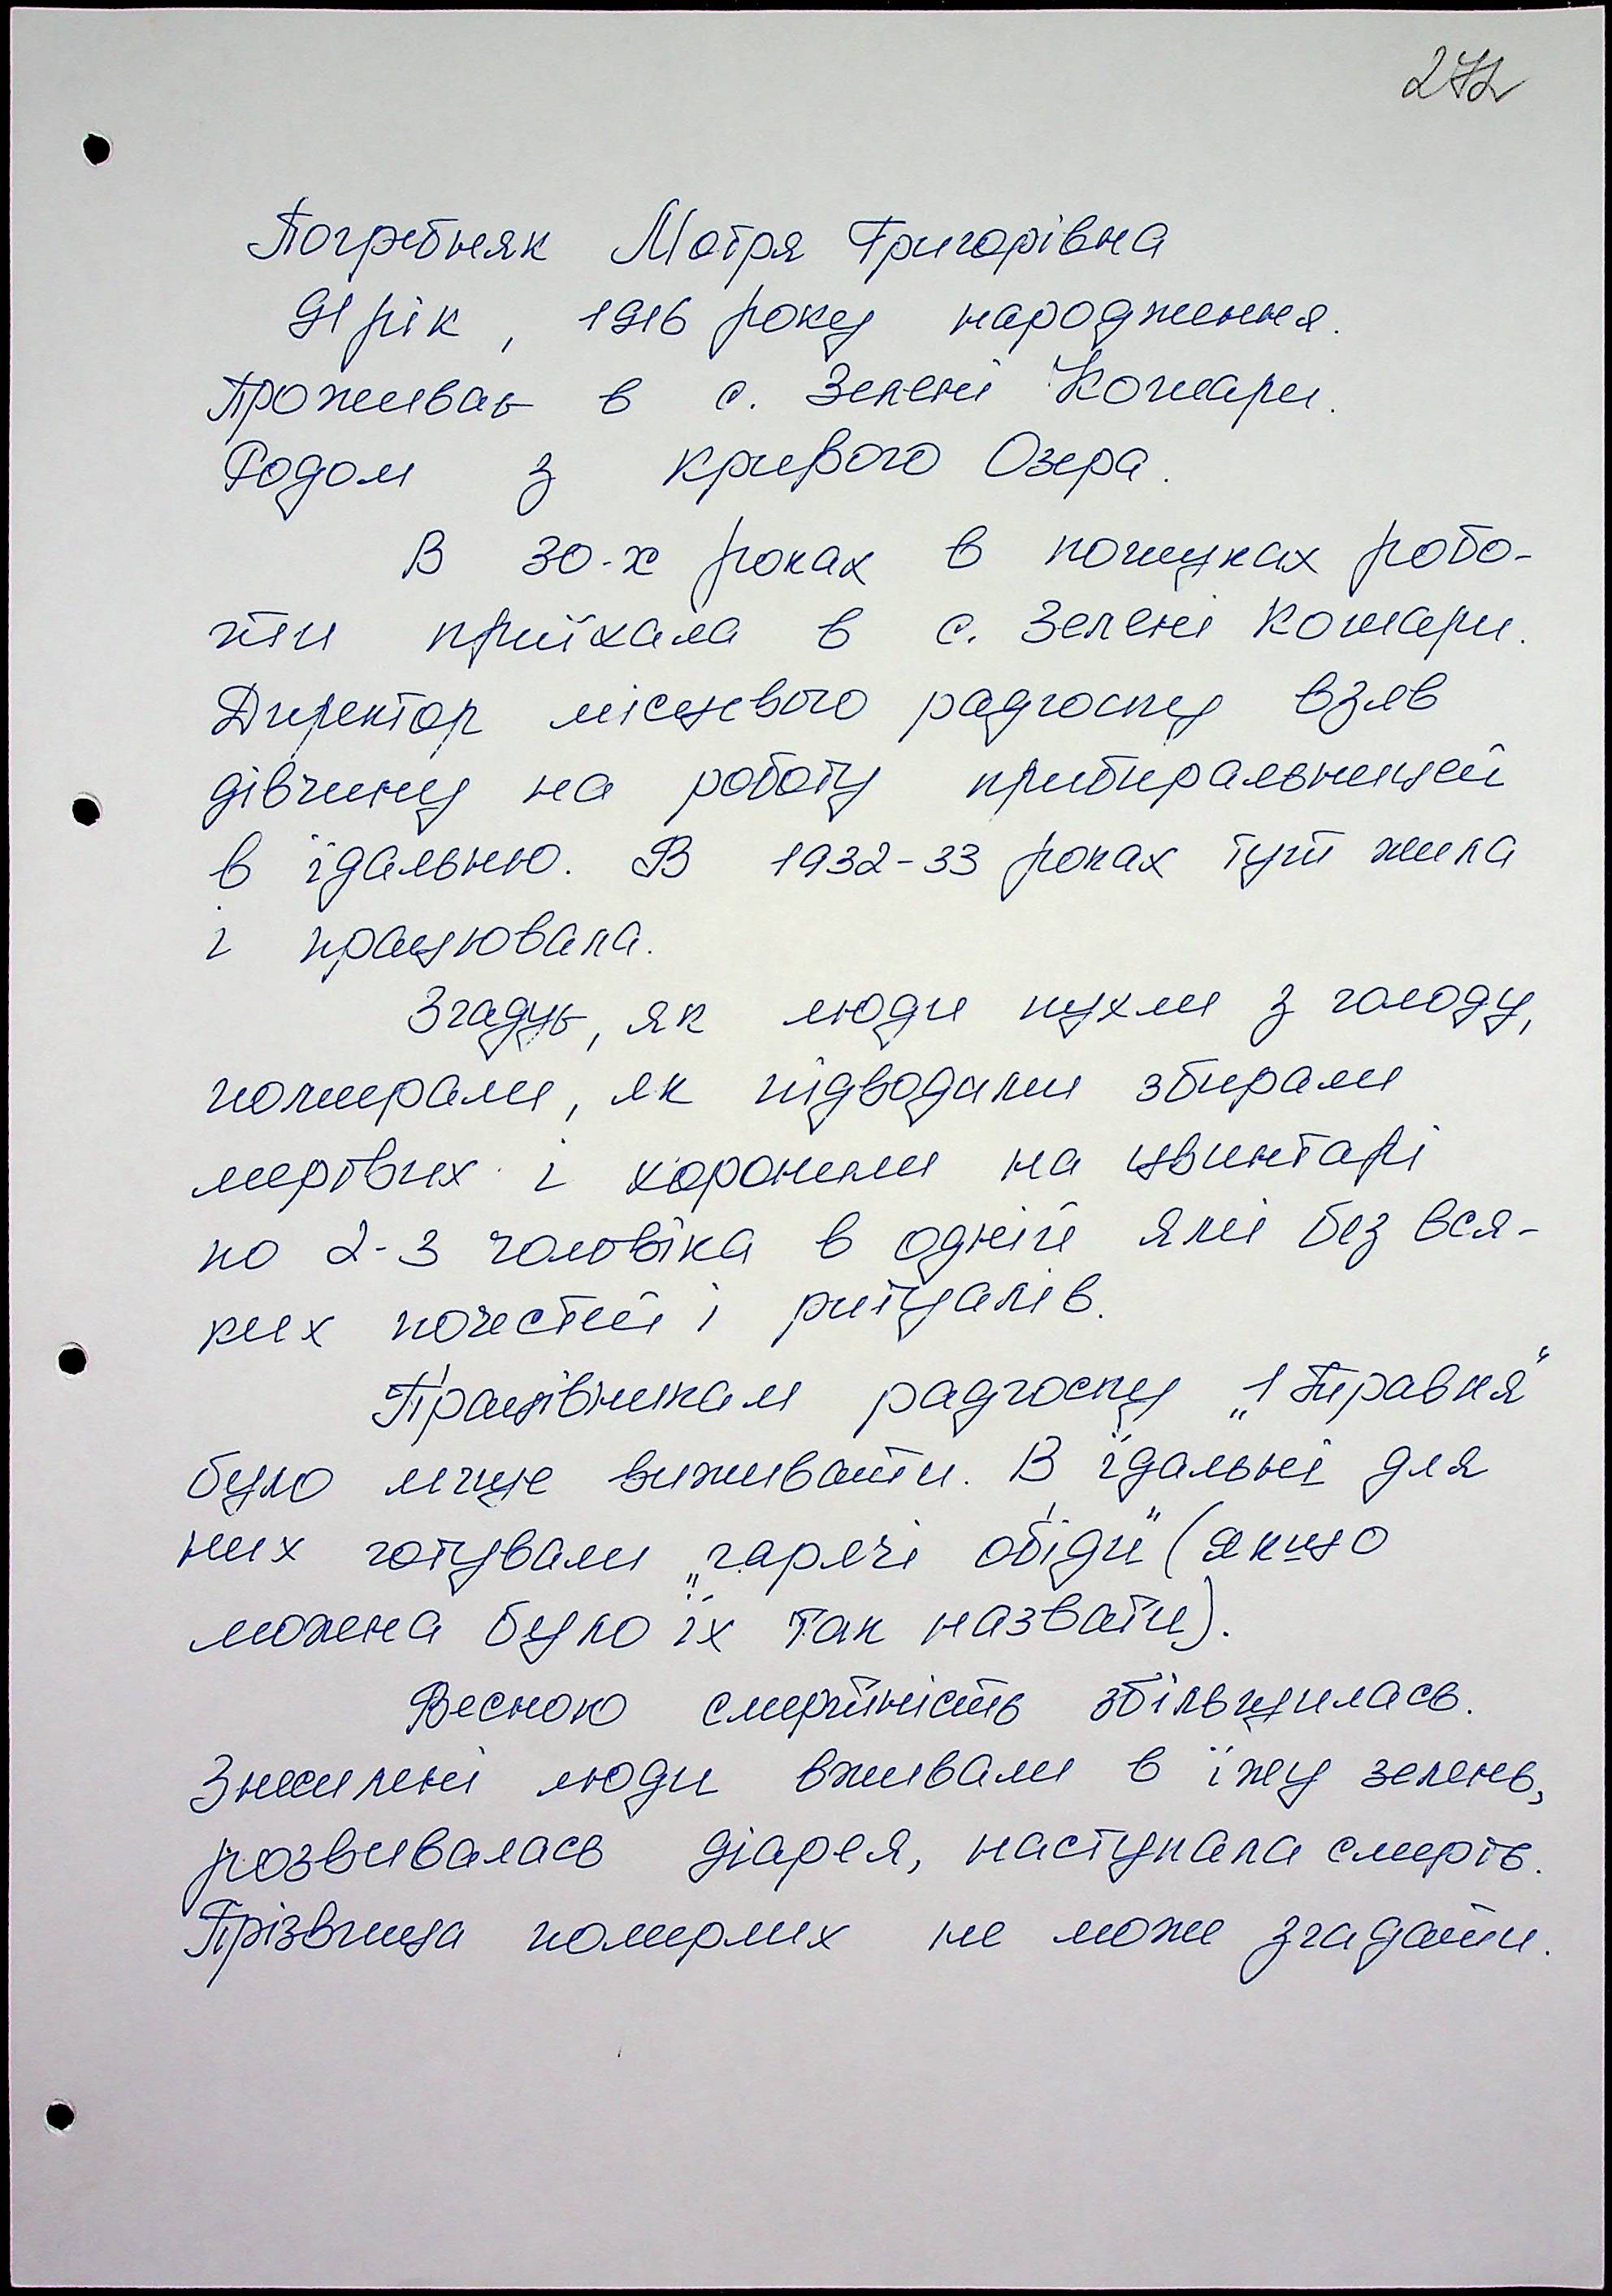 272
Погребняк Мотря Григорівна
91 рік, 1916 року народження.
Проживає в с. Зелені Кошари.
Родом з Кривого Озера.
В 30-х роках в пошуках робо-
ти приїхала в с. Зелені Кошари.
Директор місцевого радгоспу взяв
дівчину на роботу прибиральницей
в їдальню. В 1932-33 роках тут жила
і працювала.
Згадує, як люди пухли з голоду,
помирали, як підводами збирали
мертвих і хоронили на цвинтарі
по 2-3 чоловіка в одній ямі без вся-
ких почестей і ритуалів.
Працівникам радгоспу „1 Травня“
було легше виживати. В їдальні для
них готували „гарячі обіди“ (якщо
можна було їх так назвати).
Весною смертність збільшилась.
Знесилені люди вживали в їжу зелень,
розвивалась діарея, наступала смерть.
Прізвища померлих не може згадати.